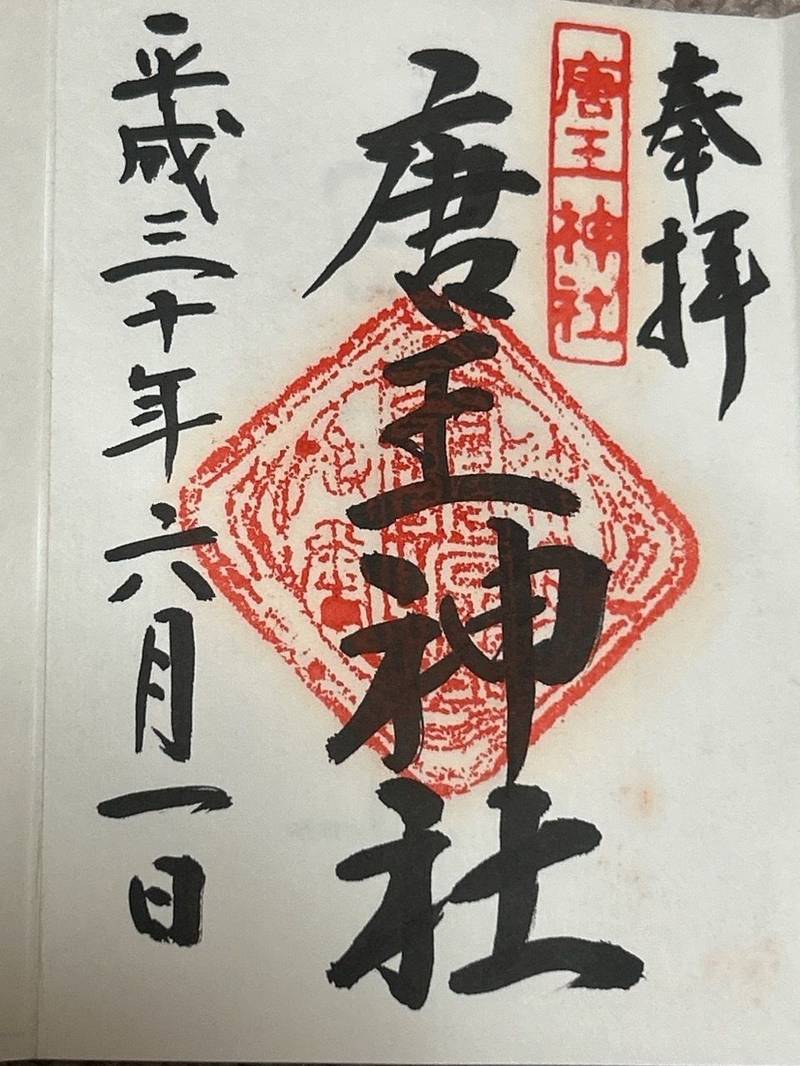 奉拝
唐王神社
唐王神社
平成三十年六月一日